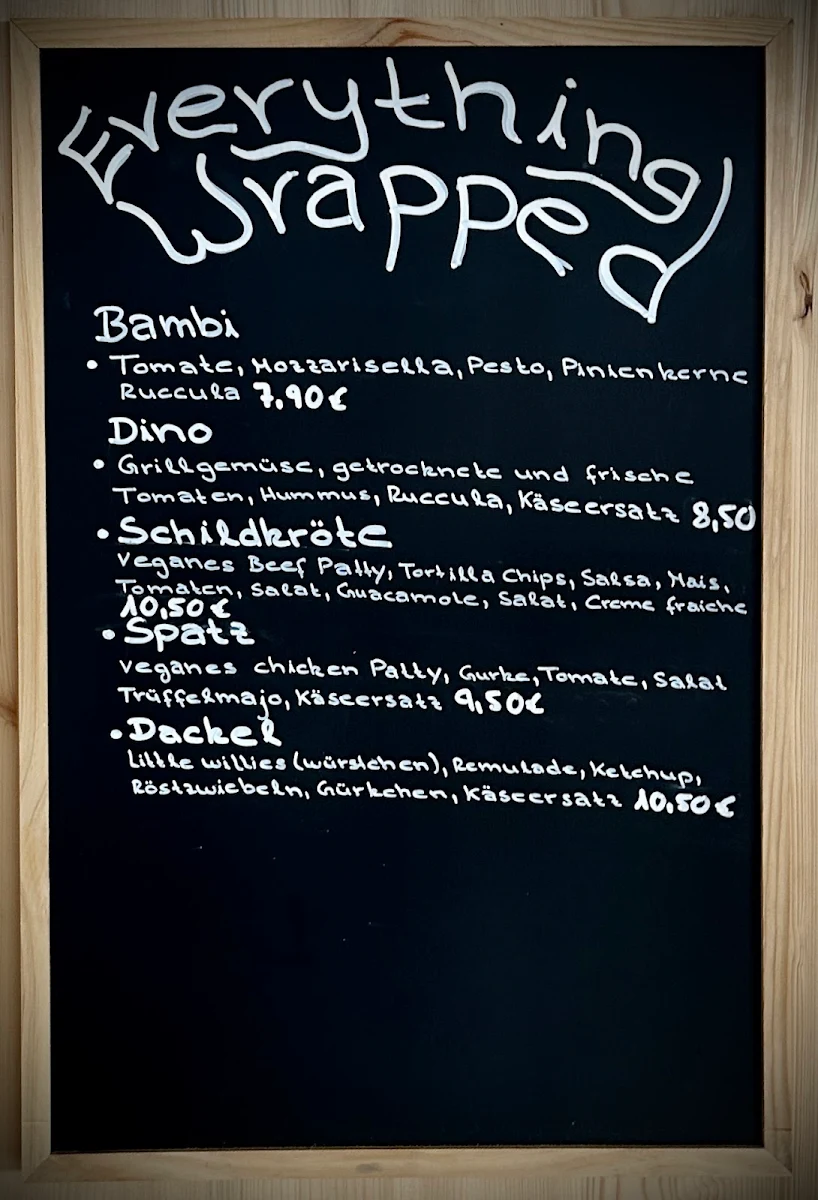 Everything
Wrapped
Bambi
• Tomate, Mozzarisella, Pesto, Pinienkerne
Ruccula 7,90€
Dino
• Grillgemüse, getrocknete und frische
Tomaten, Hummus, Ruccula, Käseersatz 8,50
• Schildkröte
Veganes Beef Patty, Tortilla Chips, Salsa, Mais,
Tomaten, Salat, Guacamole, Salat, Creme fraiche
10,50€
• Spatz
Veganes chicken Patty, Gurke, Tomate, Salat
Trüffelmajo, Käseersatz 9,50€
• Dackel
Little willies (würstchen), Remulade, Ketchup,
Röstzwiebeln, Gürkchen, Käseersatz 10,50€